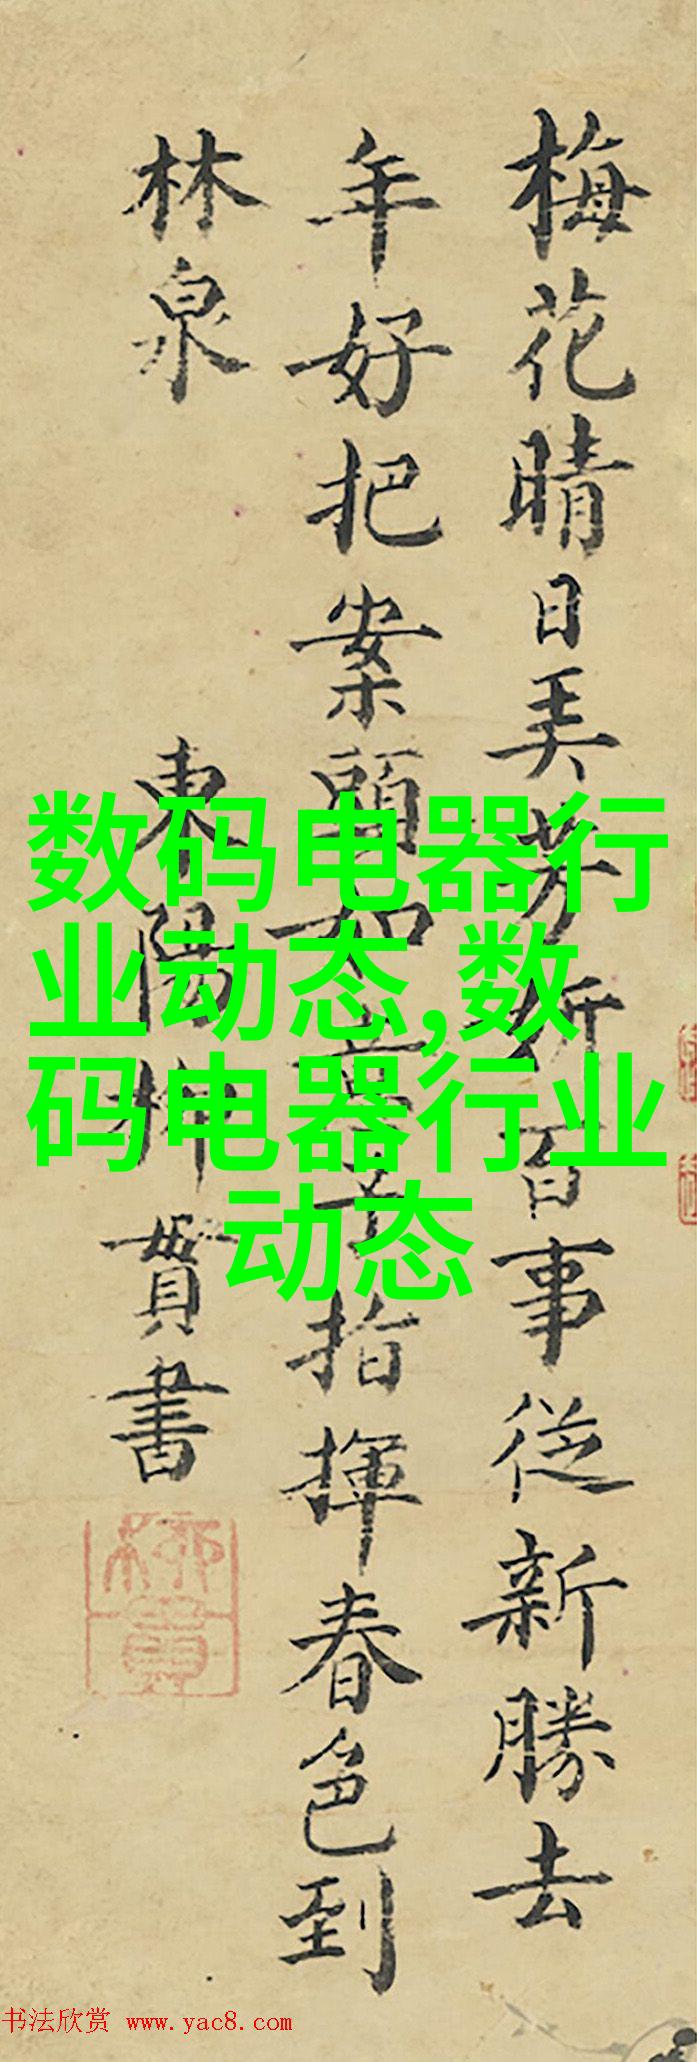 梅花晴日美芳妍百事從新勝去
年好把案頭如意子指揮春色到
林泉
東陽柳貫書
柳貫
数码电器行
业动态,数
码电器行业
动态
书法欣赏 www.yac8.com